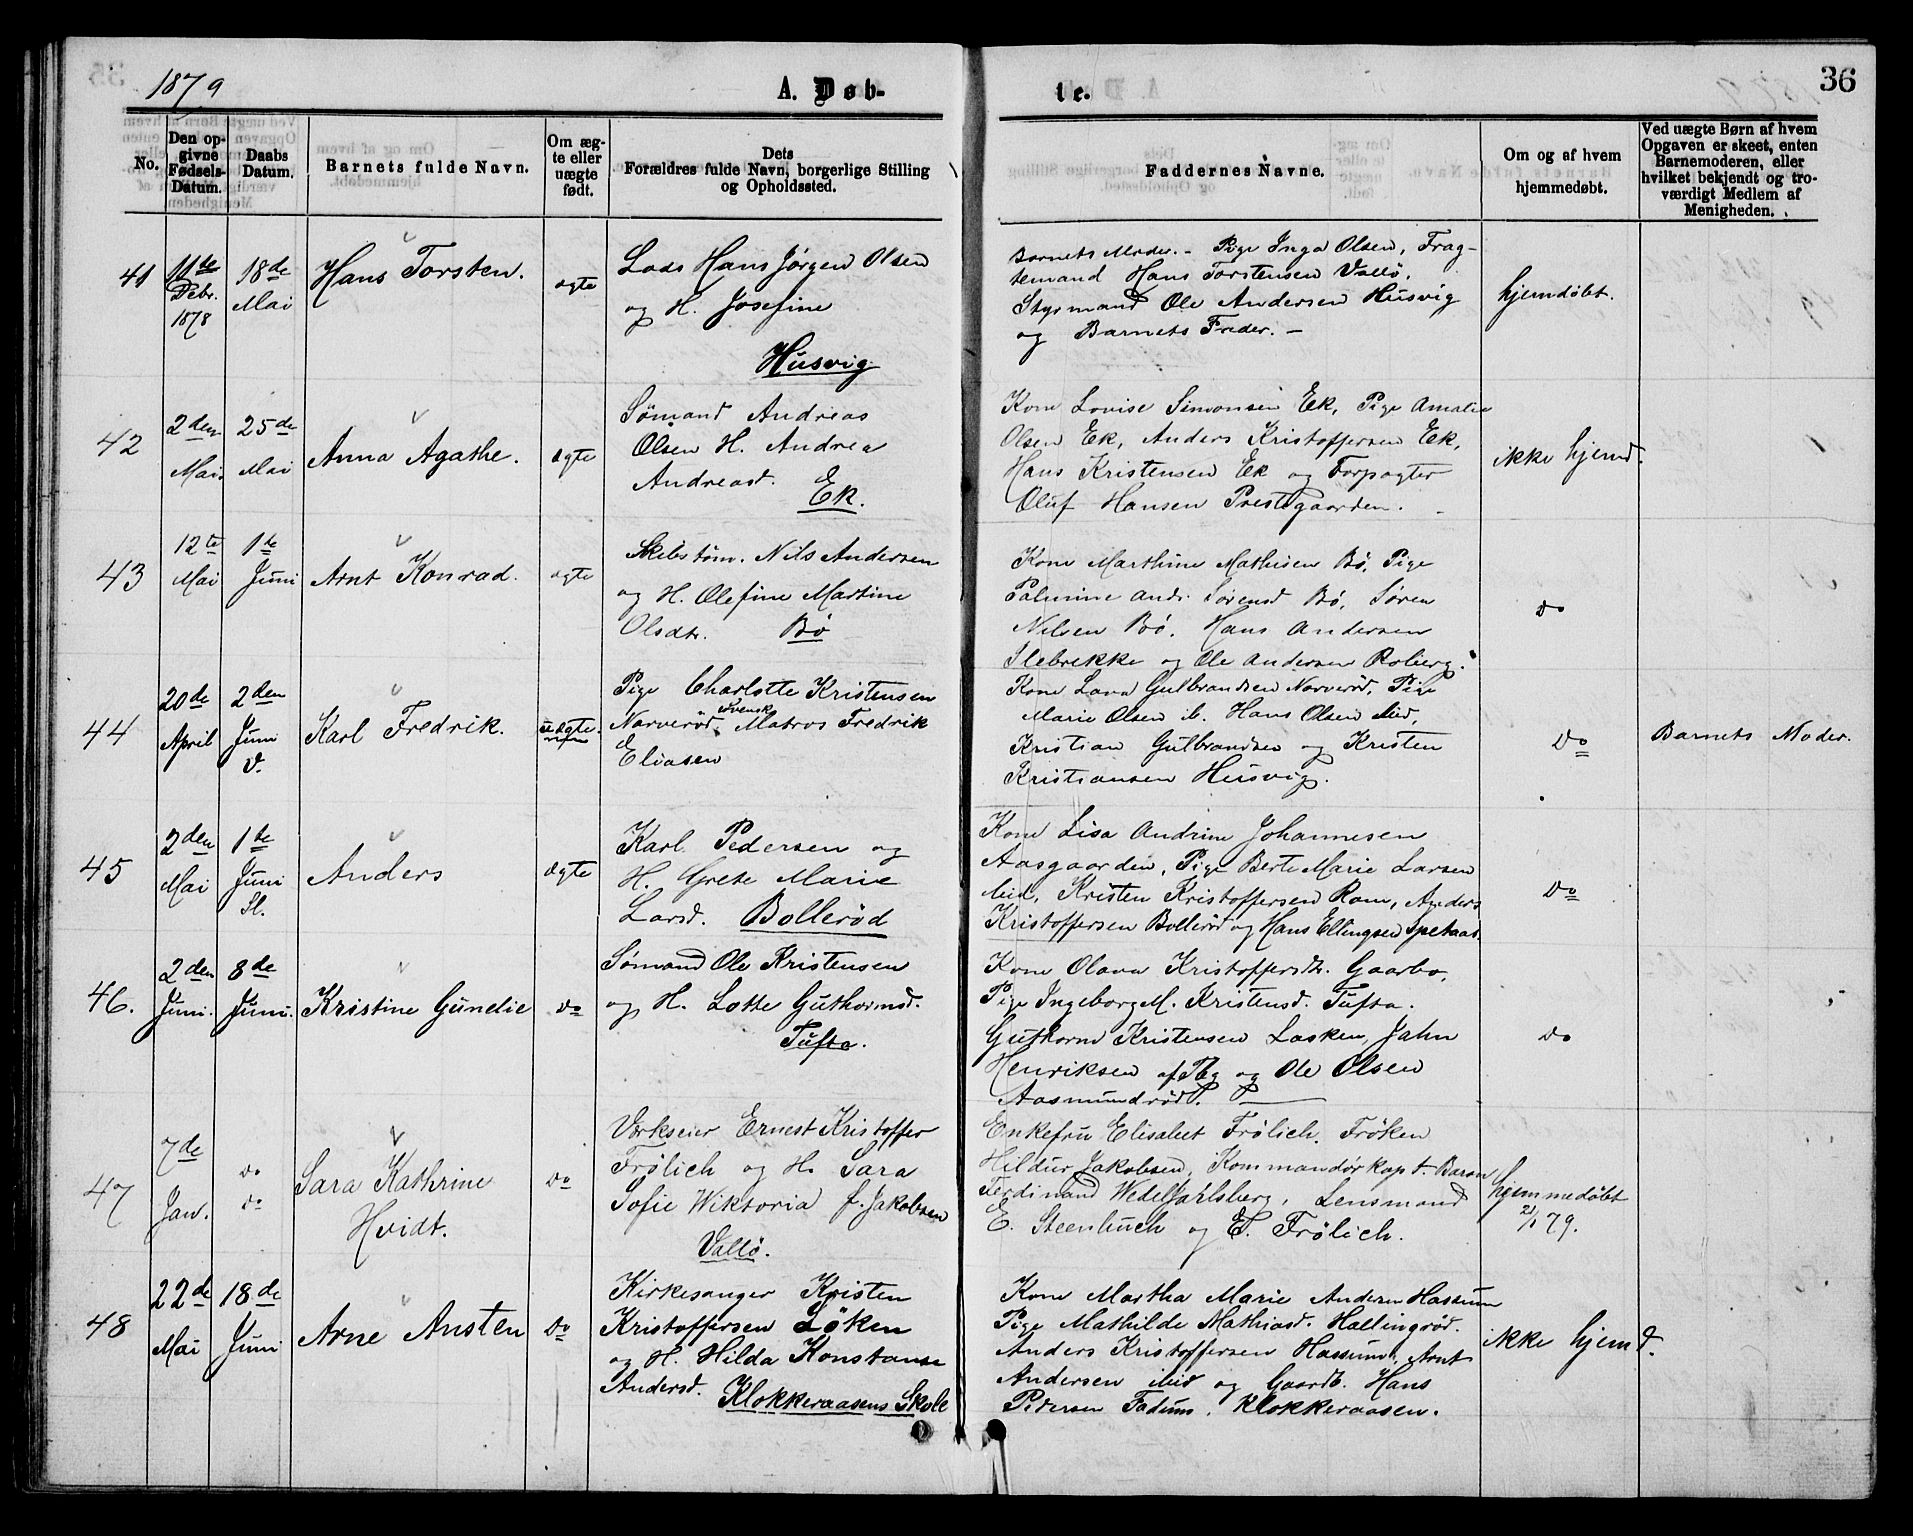 1879
A. Døb-
te.
36
No.
Den op-
givne
Fødsels-
Datum.
Daabs
Datum.
Barnets fulde Navn.
Om æg-
te eller
uægte
født.
Dets
Forældres fulde Navn, borgerlige Stilling
og Opholdssted.
Faddernes Navne.
Om og af hvem
hjemmedøbt.
Ved uægte Børn af hvem
Opgaven er skeet, enten
Barnemoderen, eller
hvilket bekjendt og tro-
værdigt Medlem af
Menigheden.
41
11te
Febr.
1878
18de
Mai
Hans Torsten.
ægte
Lods Hans Jørgen Olsen
og H. Josefine
Husvig
Barnets Moder. - Pige Inga Olsen, Frag-
temand Hans Torstensen Vallö,
Styrmand Ole Andersen Husvig
og Barnets Fader. -
hjemdøbt.
42
2den
Mai.
25de
Mai
Anna Agathe.
ægte
Sømand Andreas
Olsen H. Andrea
Andreasd.
Ek.
Kone Lovise Simonsen Ek, Pige Amalie
Olsen Ek, Anders Kristoffersen Ek,
Hans Kristensen Ek og Forpagter
Oluf Hansen Prestgaarden.
ikke hjemd.
43
12te
Mai
1te
Juni
Arnt Konrad.
ægte
Skibstöm. Nils Andersen
og H. Olefine Martine
Olsdtr. Bö
Kone Marthine Mathisen Bö, Pige
Palmine Andr. Sörensd Bö, Sören
Nilsen Bö, Hans Andersen
Slebrekke og Ole Andersen Roberg.
do
44
20de
April
2den
Juni
V.
Karl Fredrik.
uægte.
Pige Charlotte Kristensen
Svensk
Norveröd, Matros Fredrik
Eliasen
Kone Lava Gulbrandsen Norveröd, Pige
Marie Olsen ib. Hans Olsen ibid,
Kristian Gulbrandsen og Kristen
Kristiansen Husvig.
Do
Barnets Moder.
45
2den
Mai
1te
Juni
Sl.
Anders
ægte
Karl Pedersen og
H. Grete Marie
Larsd. Bolleröd
Kone Lisa Andrine Johannesen
Aasgaarden, Pige Berte Marie Larsen
ibid, Kristen Kristoffersen Rom, Anders
Kristoffersen Bolleröd og Hans Ellingsen Spetaas.
Do
46.
2den
Juni.
8de
Juni.
Kristine Gunelie
do
Sømand Ole Kristensen
og H. Lotte Guthormsd.
Tufte.
Kone Olava Kristoffersdtr. Gaarbo,
Pige Ingeborg M. Kristensd. Tufte.
Guthorm Kristensen Lasken, Jahn
Henriksen af Tbg og Ole Olsen
Aasmundröd.
do
47
7de
Jan.
do
do
Sara Kathrine
Hvidt.
do
Værkseier Ernest Kristoffer
Frölich og H. Sara
Sofie Wiktoria f. Jakobsen
Vallö.
Enkefru Elisabet Frölich, Fröken
Hildur Jakobsen, Kommandörkapt. Baron
Ferdinand Wedel Jarlsberg, Lensmand
E. Steenbuch og E. Frölich.
hjemmedøbt
21/1 79.
48
22de
Mai
18de
Juni
Arne Ansten
Do
Kirkesanger Kristen
Kristoffersen Löken
og H. Hilda Konstanse
Andersd. Klokkeraasens Skole
Kone Martha Marie Andersen Hassum
Pige Mathilde Mathiasd. Hallingröd.
Anders Kristoffersen Hassum, Arnt
Andersen ibid og Gaardb. Hans
Pedersen Fadum, Klokkeraasen.
ikke hjemd.